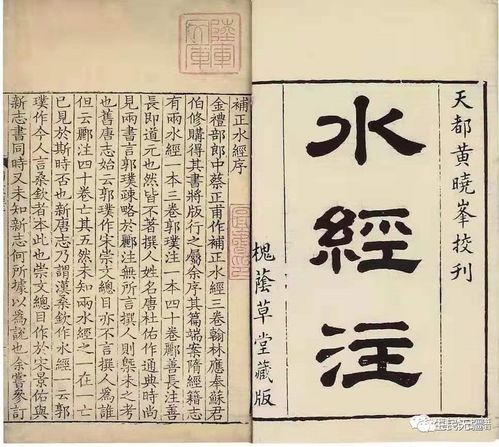 天都黃曉峯挍刊
水經注
槐蔭草堂藏版
補正水經序
金禮部郎中蔡正甫作補正水經三卷翰林應奉蘇君
伯修購得其書將版行之屬余序其篇端案隋經籍志
有兩水經一本三卷郭璞注一本四十卷酈善長注善
長即道元也然皆不著撰人姓名唐杜佑作通典時尚
見兩書言郭璞疎略於酈注無所言撰人則槩未之考
也舊唐志始云郭璞作宋崇文總目亦不言撰人為誰
但云酈注四十卷亡其五然未知兩水經之一在亡
已見於斯時否也新唐志乃謂漢桑欽作水經一云郭
璞作今人言桑欽者本此也崇文總目作於宋景佑與
新志書同時又未知新志何所據以為說也余嘗參訂